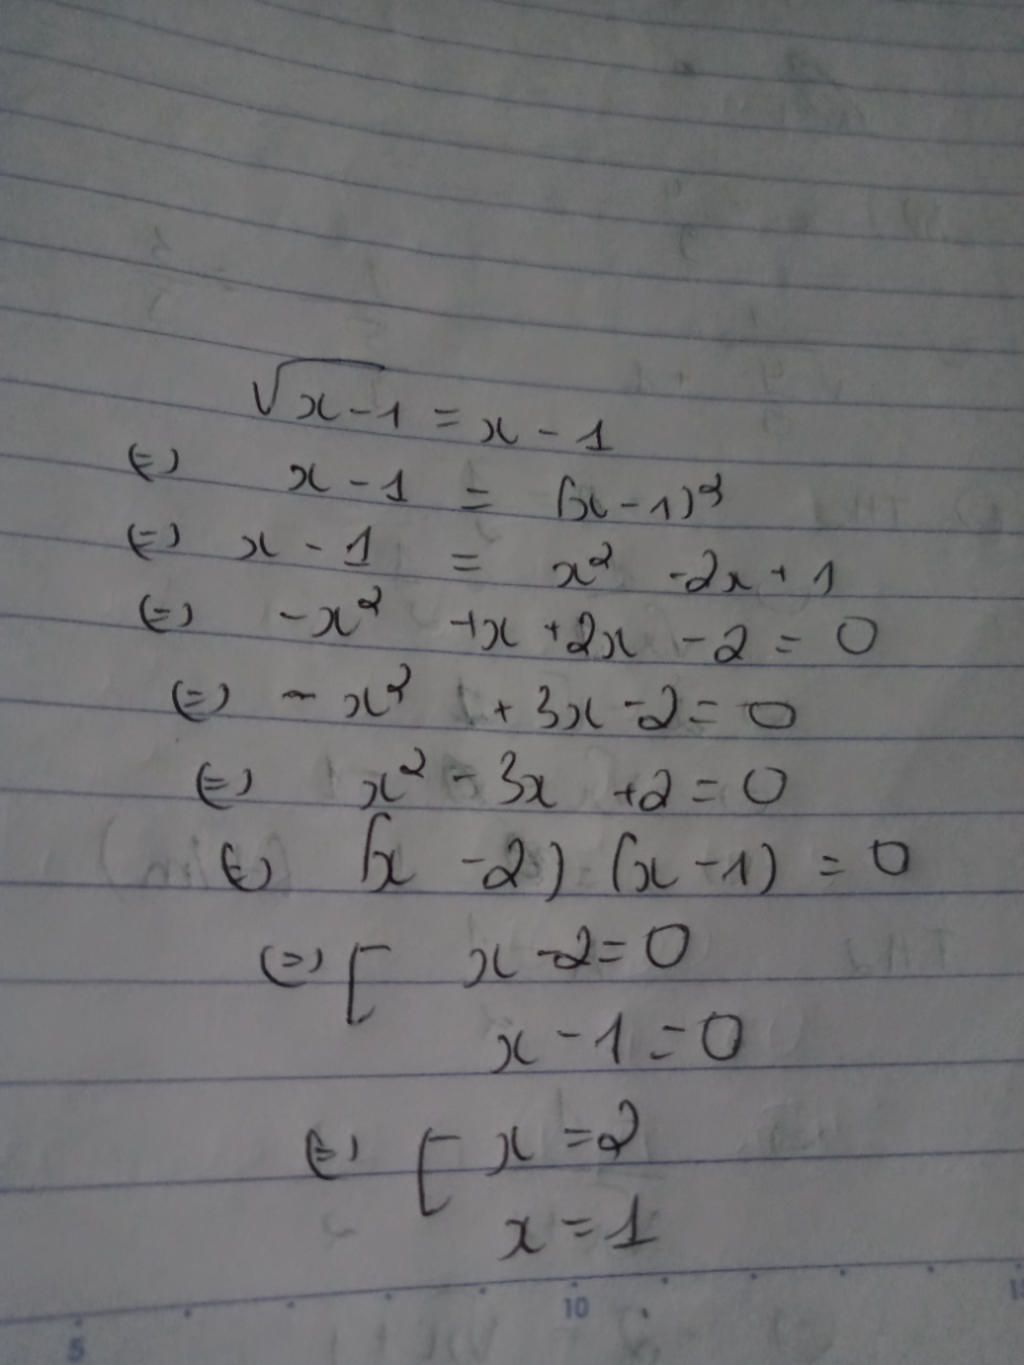 √x-1 = x - 1
(=) x - 1 = (x - 1)²
(=) x - 1 = x² - 2x + 1
(=) -x² + x + 2x - 2 = 0
(=) - x² + 3x - 2 = 0
(=) x² - 3x + 2 = 0
(=) (x - 2) (x - 1) = 0
(=) [ x - 2 = 0
x - 1 = 0
(=) [ x = 2
x = 1
5 10